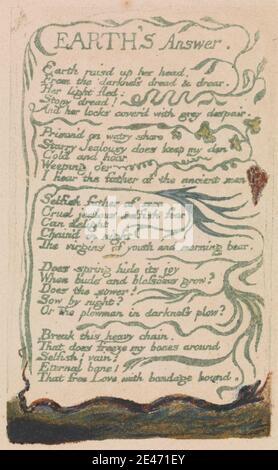 EARTH'S Answer.
Earth rais'd up her head,
From the darkness dread & drear.
Her light fled:
Stony dread!
And her locks cover'd with grey despair.
Prison'd on watry shore
Starry Jealousy does keep my den
Cold and hoar
Weeping o'er
I hear the father of the ancient men
Selfish father of men
Cruel jealous selfish fear
Can delight
Chain'd in night
The virgins of youth and morning bear.
Does spring hide its joy
When buds and blossoms grow?
Does the sower?
Sow by night?
Or the plowman in darkness plow?
Break this heavy chain,
That does freeze my bones around
Selfish! vain!
Eternal bane!
That free Love with bondage bound.
alamy
Image ID: 2E471EY
www.alamy.com